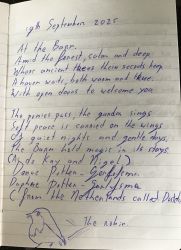 September 2025
At the Barn.
Amid the forest, calm and deep
Whose ancient trees their secrets keep
A house waits, both warm and true.
With open doors to welcome you
The pass, the garden sings
Soft peace is carried on the wings
Of quiet nights and gentle days.
The Barn held magic in its stays.
(Andy Kay and Nigel)
Potter -
Daphne Potter -
C. from the Netherlands called
The robin.